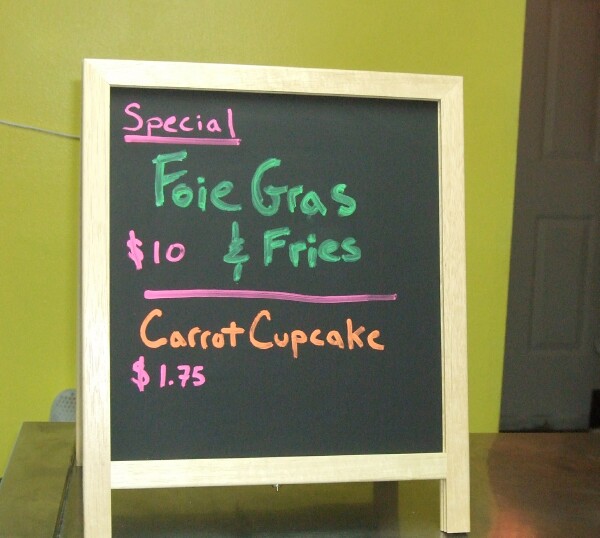 Special
Foie Gras
$10 & Fries
Carrot Cupcake
$1.75